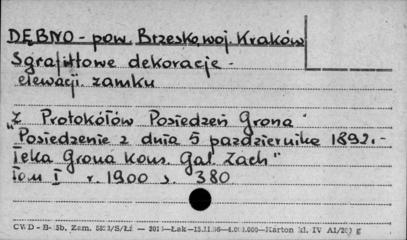 DĘBNO - pow. Brzesko, woj. Kraków
Sgrafittowe dekoracje -
elewacji zamku
"Z Protokółów Posiedzeń Grona
Posiedzenie z dnia 5 pazdziernika 1892. -
Teka Grona Kons. Gal. Zach"
tom I r. 1900 s. 380
CWD - B- Zam. - Łak - Karton kl. IV A1/ g